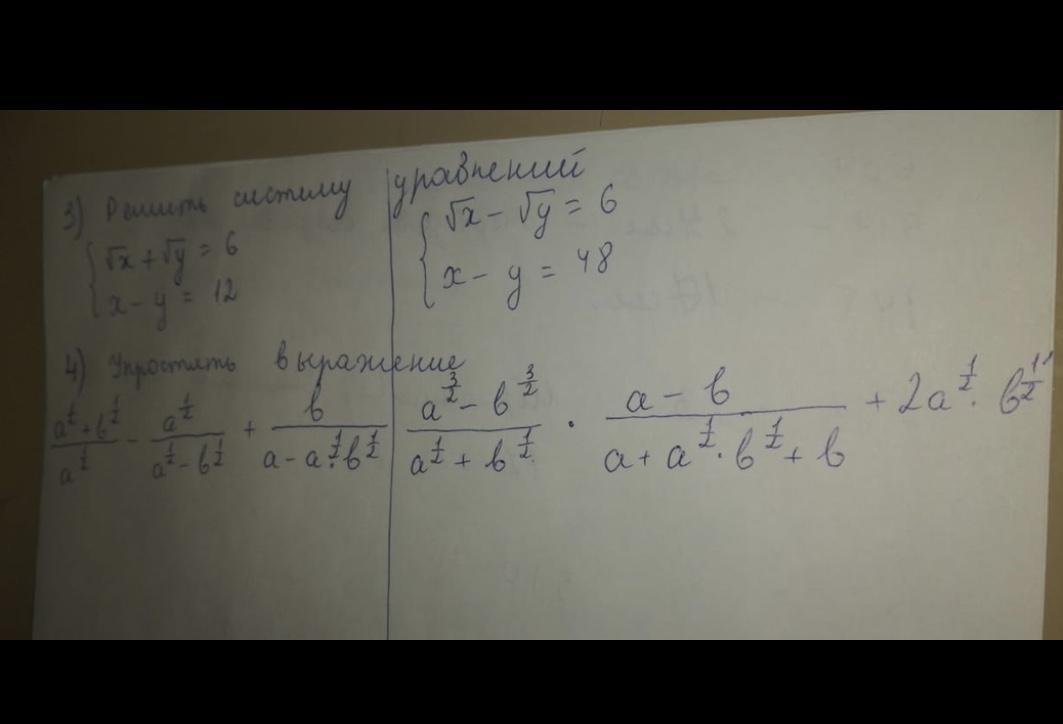 3) Решить систему уравнений
{ √x + √y = 6
x - y = 12
{ √x - √y = 6
x - y = 48
4) Упростить выражение
(a^(1/2) + b^(1/2)) / a^(1/2) - a^(1/2) / (a^(1/2) - b^(1/2)) + b / (a - a^(1/2) · b^(1/2))
(a^(3/2) - b^(3/2)) / (a^(1/2) + b^(1/2)) · (a - b) / (a + a^(1/2) · b^(1/2) + b) + 2a^(1/2) · b^(1/2)